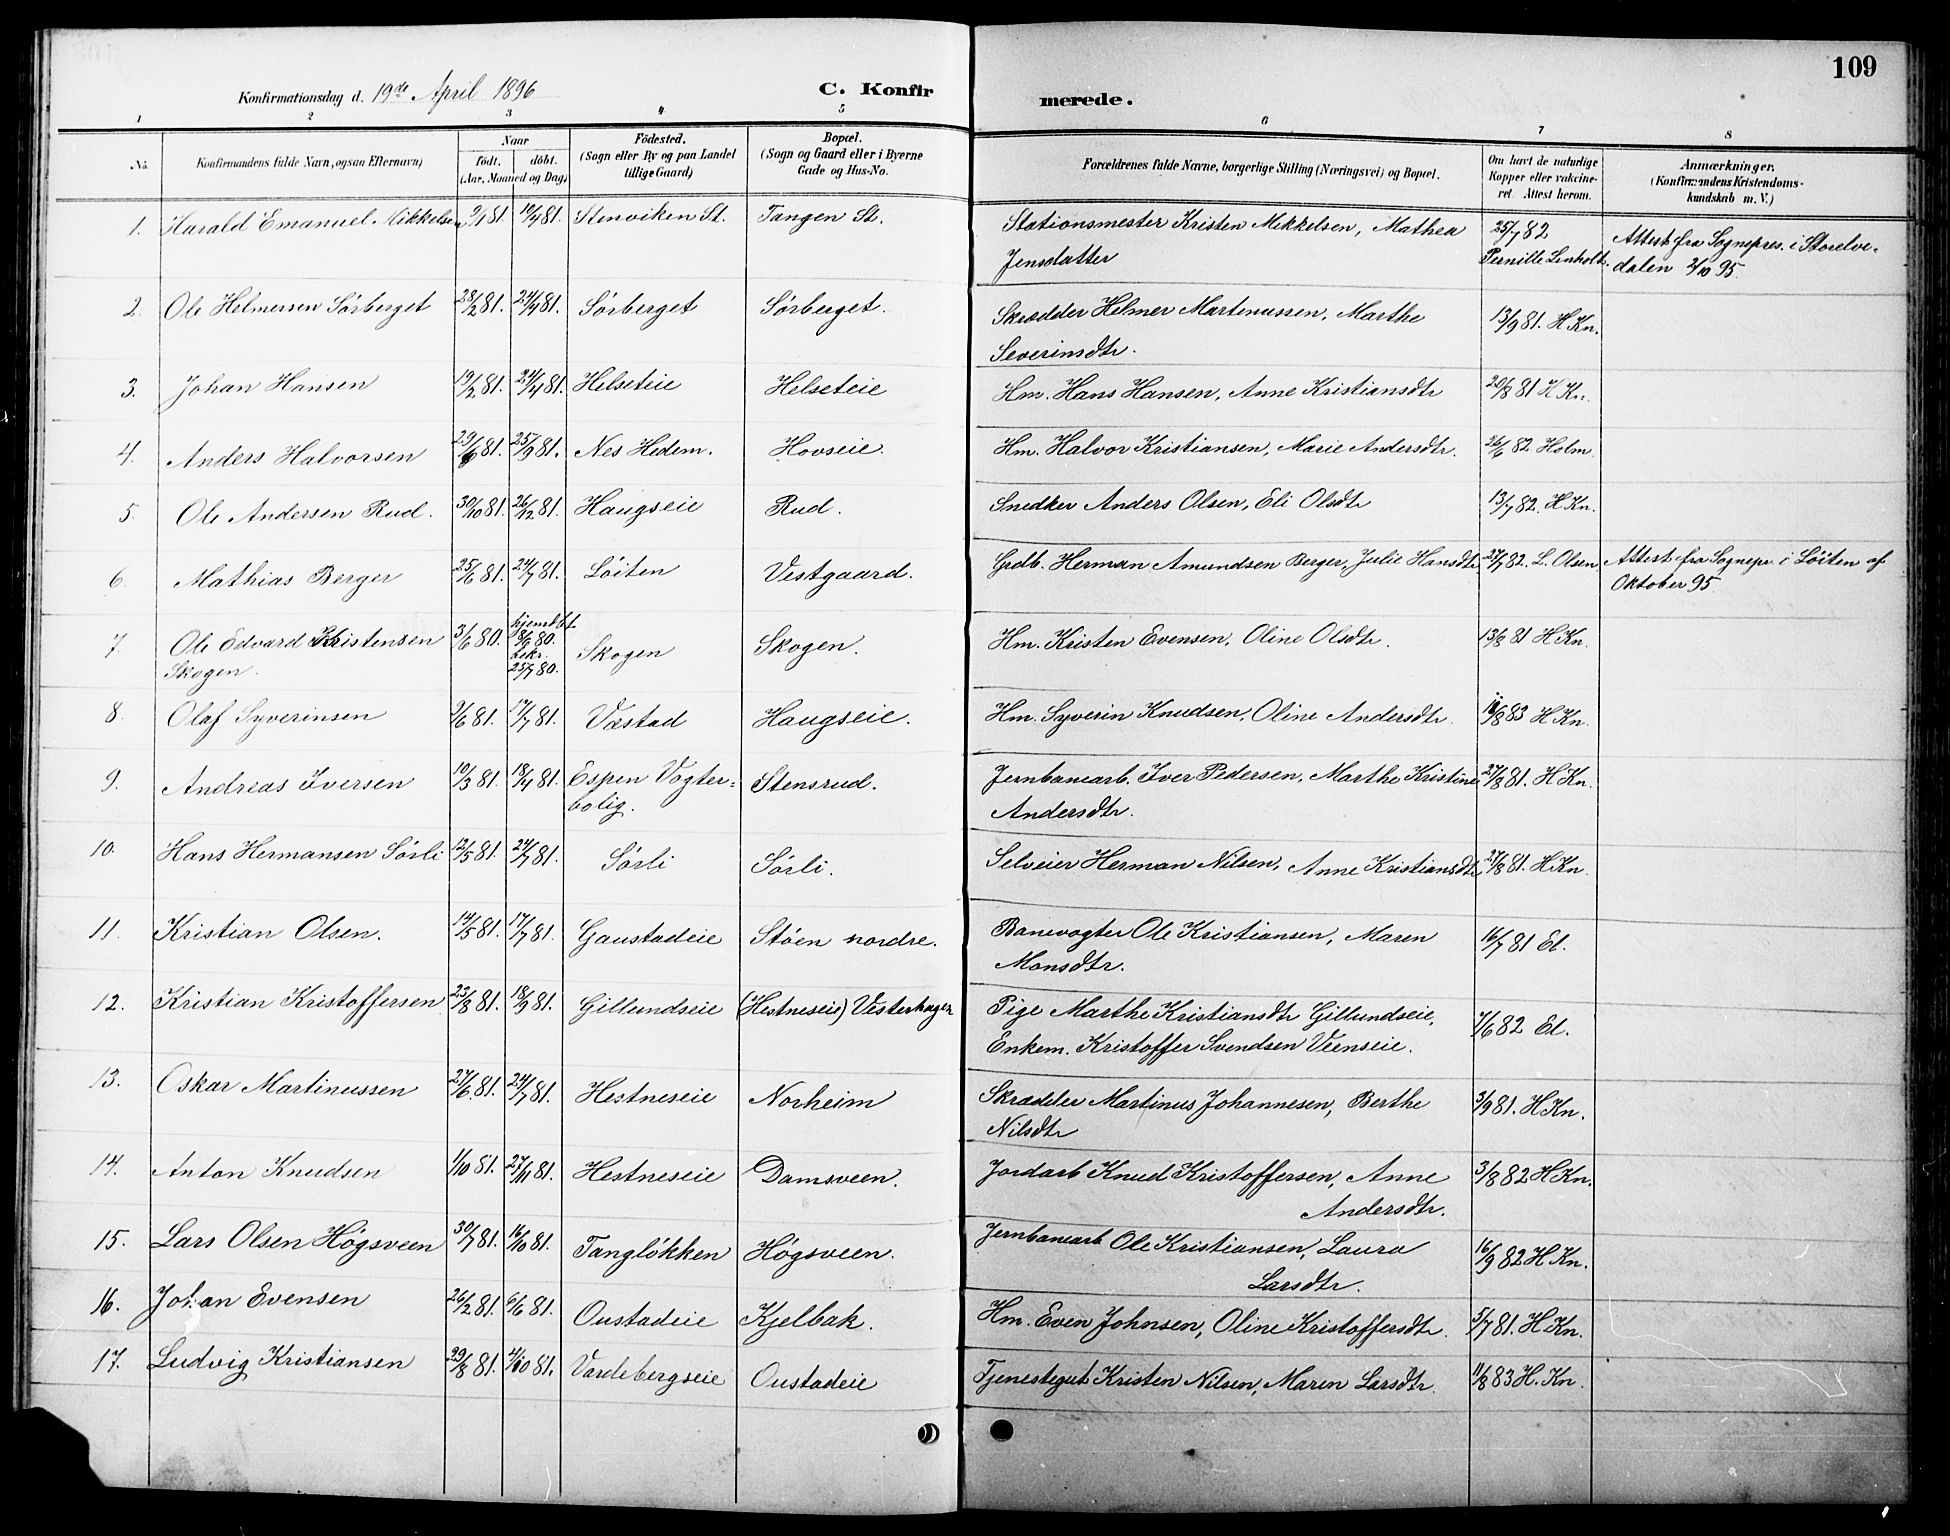 109
Konfirmationsdag d. 19de April 1896 C. Konfirmerede.
1 2 3 4 5 6 7 8
No. Konfirmandens fulde Navn, ogsaa Efternavn) Naar födt. döbt. (Aar, Maaned og Dag) Födested. (Sogn eller By og paa Landet tillige Gaard) Bopæl. (Sogn og Gaard eller i Byerne Gade og Hus-No. Forældrenes fulde Navne, borgerlige Stilling (Næringsvei) og Bopæl. Om havt de naturlige Kopper eller vakcineret. Attest herom. Anmærkninger. (Konfirmandens Kristendomskundskab m. V.)
1. Harald Emanuel Mikkelsen 9/1 81. 19/4 81. Stenviken St. Tangen St. Stationsmester Kristen Mikkelsen, Mathea Jensdatter 25/7 82 Pernille Linholt. Attest fra Sognepres. i Storelvedalen 2/10 95.
2. Ole Helmersen Sørberget 28/2 81. 24/4 81. Sørberget Sørberget. Skrædder Helmer Martinussen, Marthe Severinsdtr. 13/9 81. H Kn.
3. Johan Hansen 19/2 81. 24/4 81. Helseteie Helseteie Hm. Hans Hansen, Anne Kristiansdtr 20/8 81 H Kn.
4. Anders Halvorsen 29/6 81. 25/9 81. Nes Hedem. Hovseie. Hm. Halvor Kristiansen, Marie Andersdtr. 26/6 82 Holm.
5. Ole Andersen Rud. 30/10 81. 26/12 81. Haugseie Rud. Snedker Anders Olsen, Eli Olsdtr 13/7 82. H Kn.
6. Mathias Berger 25/6 81. 24/7 81. Löiten Vestgaard. Grdb. Herman Amundsen Berger, Julie Hansdtr. 27/7 82. L. Olsen Attest fra Sognepr. i Löiten af Oktober 95
7. Ole Edvard Kristensen Skogen. 3/6 80. hjemdbt. 8/6 80. bekr. 25/7 80. Skogen Skogen. Hm. Kristen Evensen, Oline Olsdtr. 13/8 81 H Kn.
8. Olaf Syverinsen 9/6 81. 17/7 81. Væstad Haugseie. Hm. Syverin Knudsen, Oline Andersdtr. /8 83 H Kn.
9. Andreas Iversen 10/3 81. 18/4 81. Espen Vogterbolig. Stensrud. Jernbanearb. Iver Pedersen, Marthe Kristine Andersdtr. 27/8 81. H Kn.
10. Hans Hermansen Sørli 12/5 81. 24/7 81. Sørli Sørli. Selveier Herman Nilsen, Anne Kristiansdtr, 27/8 81. H Kn.
11. Kristian Olsen. 14/5 81. 17/7 81. Gaustadeie Støen nordre. Banevogter Ole Kristiansen, Maren Monsdtr. 16/7 81 El.
12. Kristian Kristoffersen 23/8 81. 18/9 81. Gillundseie (Hestneseie) Vesterhagen Pige Marthe Kristiansdtr Gillundseie, Enkem. Kristoffer Svendsen Veenseie. 7/6 82 El.
13. Oskar Martinussen 27/6 81. 24/7 81. Hestneseie Norheim Skrædder Martinus Johannesen, Berthe Nilsdtr 3/9 81. H Kn.
14. Anton Knudsen 1/10 81. 27/11 81. Hestneseie Damsveen. Jordarb Knud Kristoffersen, Anne Andersdtr. 3/8 82 H Kn.
15. Lars Olsen Høgsveen 30/7 81. 16/10 81. Tangløkken Høgsveen. Jernbanearb Ole Kristiansen, Laura Larsdtr. 16/9 82 H Kn.
16. Johan Evensen 26/2 81. 6/6 81. Oustadeie Kjelbak. Hm. Even Johnsen, Oline Kristoffersdtr. 5/7 81. H Kn.
17. Ludvig Kristiansen 29/8 81. 2/10 81. Vardebergseie Oustadeie Tjenestegut Kristen Nilsen, Maren Larsdtr. 11/8 83 H. Kn.